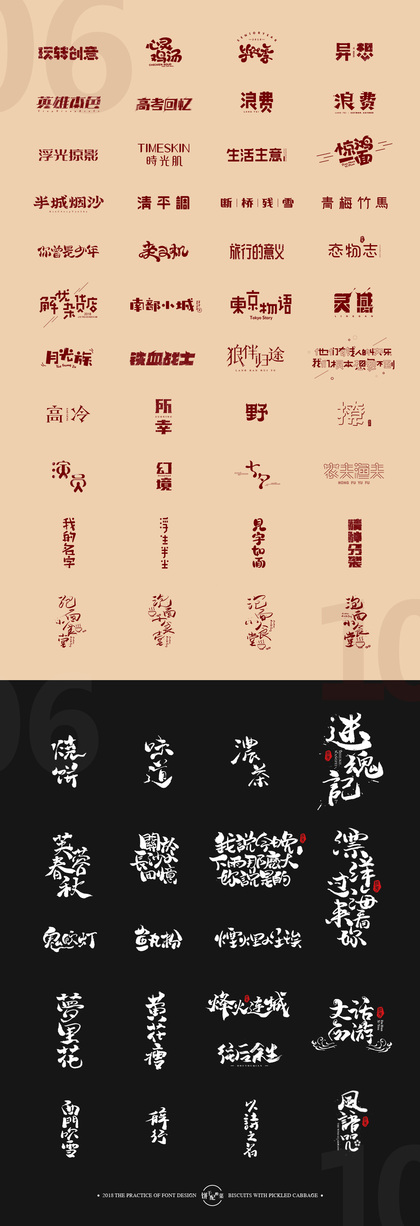 06
玩转创意
心灵鸡汤
异想
英雄本色
高考回忆
浪费
浪费
浮光掠影
TIMESKIN
時光肌
生活主意
惊鸿一面
半城烟沙
清平調
断桥残雪
青梅竹馬
你曾是少年
旅行的意义
恋物志
解忧杂货店
南部小城
東京物语
Tokyo Story
灵感
月光族
铁血战士
狼伴归途
高冷
所幸
野
撩
演员
幻境
七夕
农夫渔夫
我的名字
浮生半生
見字如面
精神分裂
泡面小食堂
泡面小食堂
泡面小食堂
泡面小食堂
10
06
烧饼
味道
濃茶
迷魂記
芙蓉春秋
關於長沙回憶
我說今晚下雨那麽大你說是的
漂洋过海来看妳
鬼吹灯
鱼丸粉
煙煙埃埃
夢里花
黄花瘦
烽火连城
往后余生
大话西游
西門吹雪
醉行
以詩之名
風語咒
10
2018 THE PRACTICE OF FONT DESIGN
BISCUITS WITH PICKLED CABBAGE